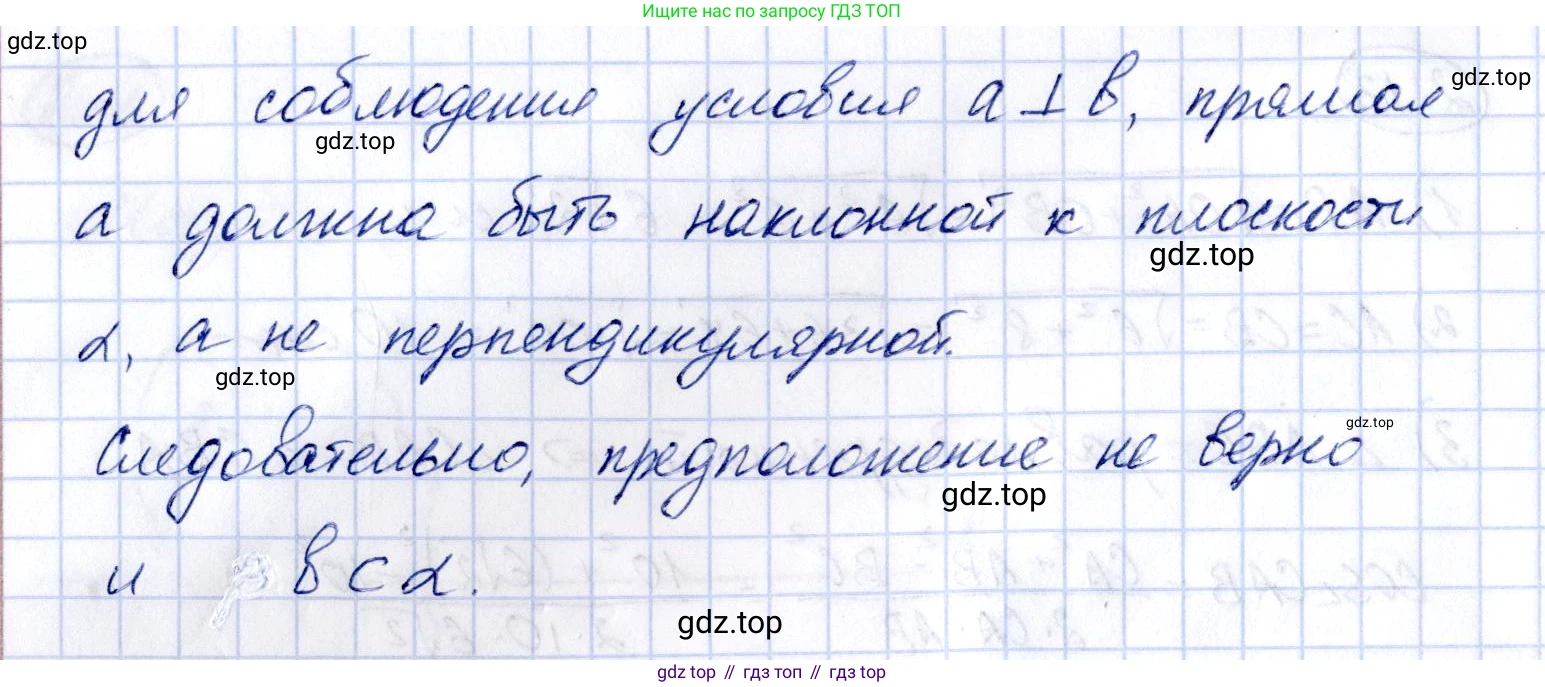 Ищите нас по запросу ГДЗ ТОП
gdz.top
для соблюдения условия a ⊥ b, прямая
gdz.top
gdz.top
a должна быть наклонной к плоскости
gdz.top
α, а не перпендикулярной.
gdz.top
gdz.top
Следовательно, предположение не верно
gdz.top
и b ⊂ α.
gdz.top
gdz top // гдз топ // gdz.top